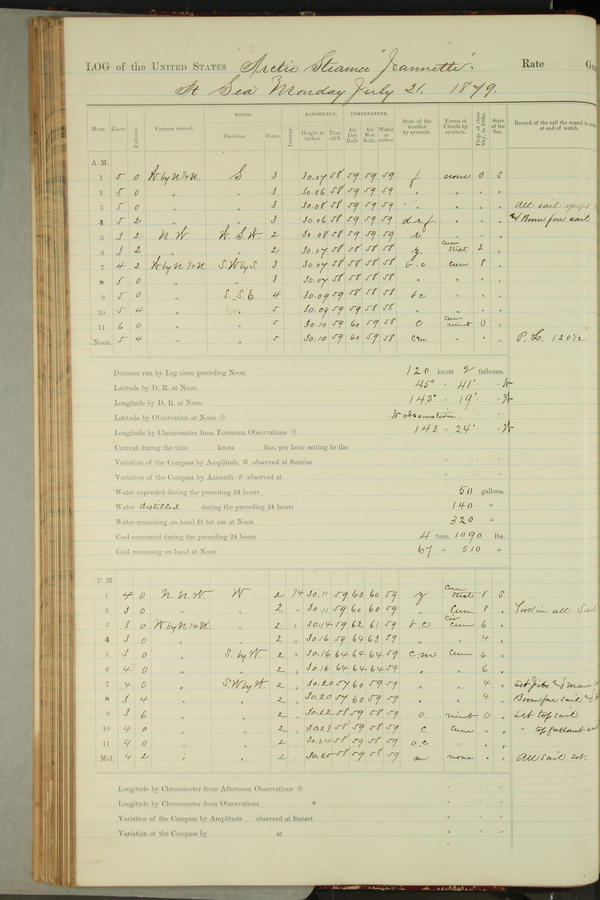 LOG of the UNITED STATES Arctic Steamer "Jeannette". Rate
At Sea Monday July 21. 1879.
Hour. Knots. Fathoms. Courses steered. WINDS. Direction. Force. Leeway. BAROMETER. Height in inches. Ther. att'd. TEMPERATURE. Air Dry Bulb. Air Wet Bulb. Water at surface. State of the weather by symbols. Forms of Clouds by symbols. Prop. of clear Sky, in 10ths. State of the Sea. Record of the sail the vessel is under at end of watch.
A. M.
1 5 0 W. by N ¾ N. S 3 30.07 58 59 59 59 f none 0 S
2 5 0 " " 3 30.06 58 59 59 59 " " " "
3 5 0 " " 3 30.08 58 59 59 59 " " " " All sail except
4 5 2 " " 3 30.06 58 59 59 59 d.r.f " " " Boom fore sail
5 3 2 N. W. W. S. W. 2 30.08 58 59 59 59 " " "
6 3 2 " " 2 30.07 58 58 58 58 cum strat 2 "
7 4 2 W. by N ¾ N S. W. by S. 3 30.07 58 58 58 58 b.c cum 8 "
8 5 0 " " 3 30.07 58 58 58 58 " " " "
9 5 0 " S. S. E. 4 30.09 59 58 58 58 b c " " "
10 5 4 " " 5 30.09 59 59 58 58 " " " "
11 6 0 " " 5 30.10 59 60 59 58 c cum nimb 0 "
Noon. 5 4 " " 5 30.10 59 60 59 58 cm " " " P. L. 120½
Distance run by Log since preceding Noon 120 knots 2 fathoms.
Latitude by D. R. at Noon 45° " 41' " N
Longitude by D. R. at Noon 143° " 19' " W
Latitude by Observation at Noon No observation.
Longitude by Chronometer from Forenoon Observations 143 " 24' " W
Current during the time knots fms. per hour setting to the
Variation of the Compass by Amplitude observed at Sunrise
Variation of the Compass by Azimuth observed at
Water expended during the preceding 24 hours 50 gallons.
Water distilled during the preceding 24 hours 140 "
Water remaining on hand fit for use at Noon 320 "
Coal consumed during the preceding 24 hours 4 tons, 1090 lbs.
Coal remaining on hand at Noon 67 " 510 "
P. M.
1 4 0 N. N. W W 2 30.11 59 60 60 59 cum strat 8 S
2 3 0 " " 2 " 30.11 59 60 60 59 " Cum 8 " Took in all Sail
3 3 0 W by N ¾ N. " 2 " 30.14 59 62 61 59 b.c cir cum 6 "
4 3 0 " " 2 " 30.16 59 64 63 59 " " 4 "
5 3 0 " S. by W. 2 " 30.16 64 64 64 59 c.m cum 6 "
6 4 0 " " 2 " 30.16 64 64 64 59 " " 6 "
7 4 0 " S. W by W. 2 " 30.20 57 60 59 59 " " 4 " Set Jibs
8 3 4 " " 2 " 30.20 57 60 59 59 " " 4 " Boom fore sail
9 3 6 " " 2 " 30.22 58 59 58 59 o. nimb 0 " Set top sail
10 4 0 " " 2 " 30.23 58 59 58 59 c cum " " " top gallant
11 4 0 " " 2 " 30.24 58 59 58 59 o.c " " "
Mid. 4 2 " " 2 " 30.25 58 59 58 59 m none " " All sail set.
Longitude by Chronometer from Afternoon Observations
Longitude by Chronometer from Observations
Variation of the Compass by Amplitude observed at Sunset
Variation of the Compass by at